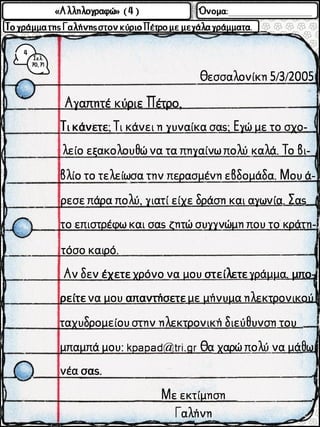 «Αλληλογραφώ» (4)
Όνομα:
Το γράμμα της Γαλήνης στον κύριο Πέτρο με μεγάλα γράμματα.
4
Σελ.
90, 91
Θεσσαλονίκη 5/3/2005
Αγαπητέ κύριε Πέτρο,
Τι κάνετε; Τι κάνει η γυναίκα σας; Εγώ με το σχο-
λείο εξακολουθώ να τα πηγαίνω πολύ καλά. Το βι-
βλίο το τελείωσα την περασμένη εβδομάδα. Μου ά-
ρεσε πάρα πολύ, γιατί είχε δράση και αγωνία. Σας
το επιστρέφω και σας ζητώ συγγνώμη που το κράτη-
τόσο καιρό.
Αν δεν έχετε χρόνο να μου στείλετε γράμμα, μπο-
ρείτε να μου απαντήσετε με μήνυμα ηλεκτρονικού
ταχυδρομείου στην ηλεκτρονική διεύθυνση του
μπαμπά μου: kpapad@tri.gr Θα χαρώ πολύ να μάθω
νέα σας.
Με εκτίμηση
Γαλήνη